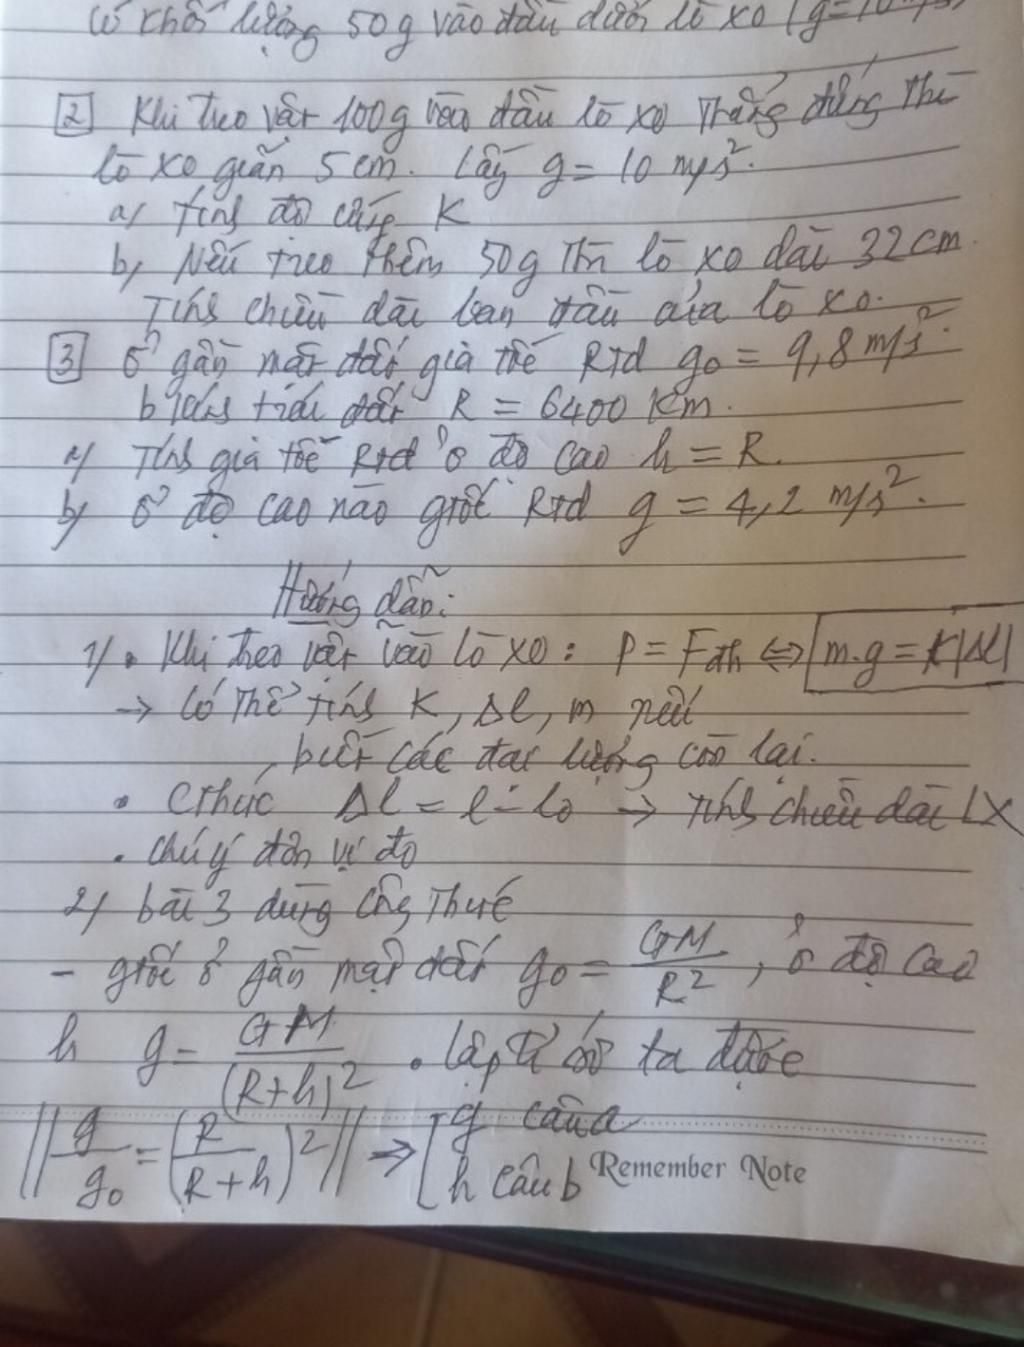 có khối lượng 50g vào đầu dưới lò xo (g=10 m/s
2 Khi treo vật 100g vào đầu lò xo thẳng đứng thì
lò xo giãn 5 cm. Lấy g = 10 m/s².
a/ Tính độ cứng K
b/ Nếu treo thêm 50g thì lò xo dài 32cm.
Tính chiều dài ban đầu của lò xo.
3 Ở gần mặt đất gia tốc Rtd g₀ = 9,8 m/s².
bkính trái đất R = 6400 Km.
a/ Tính gia tốc Rtd ở độ cao h = R.
b/ Ở độ cao nào gtốc Rtd g = 4,2 m/s².
Hướng dẫn:
1/ • Khi treo vật vào lò xo: P = Fđh ⇔ m.g = K|Δl|
→ Có thể tính K, Δl, m nếu
biết các đại lượng còn lại.
• Cthức Δl = l - l₀ → Tính chiều dài LX
• Chú ý đơn vị đo
2/ bài 3 dùng công thức
- gtốc ở gần mặt đất g₀ = GM/R², ở độ cao
h g = GM/(R+h)² • lập tỉ số ta được
g/g₀ = (R/(R+h))² → [ g câu a
h câu b Remember Note